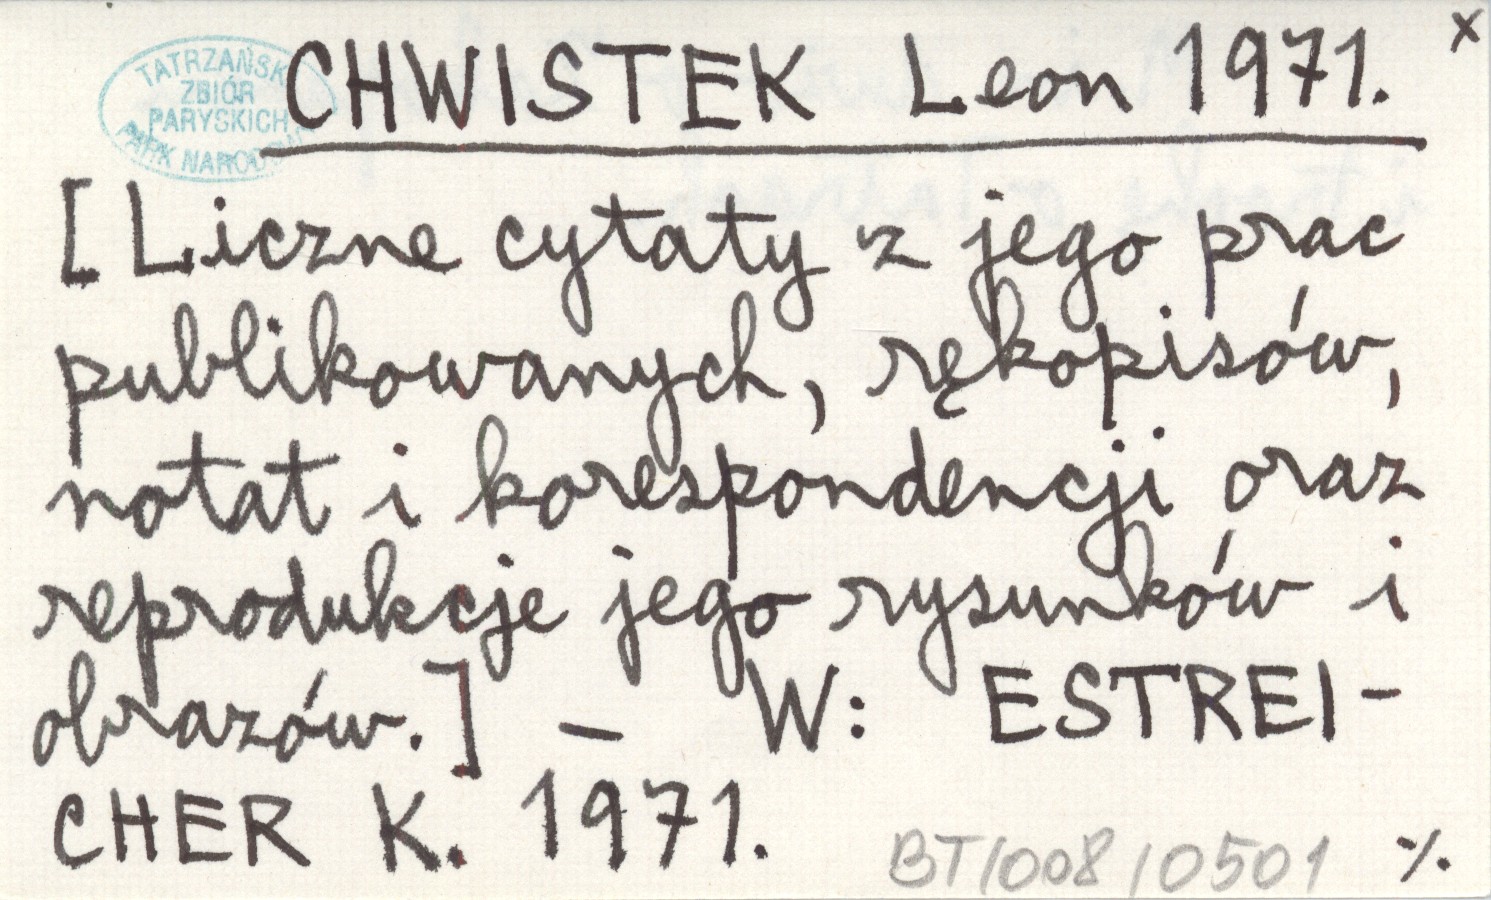 x
TATRZAŃSK
ZBIÓR
PARYSKICH
PARK NARODOW
CHWISTEK Leon 1971.
[Liczne cytaty z jego prac
publikowanych, rękopisów,
notat i korespondencji oraz
reprodukcje jego rysunków i
obrazów.] — W: ESTREI-
CHER K. 1971.
BT/008/0501
·/.